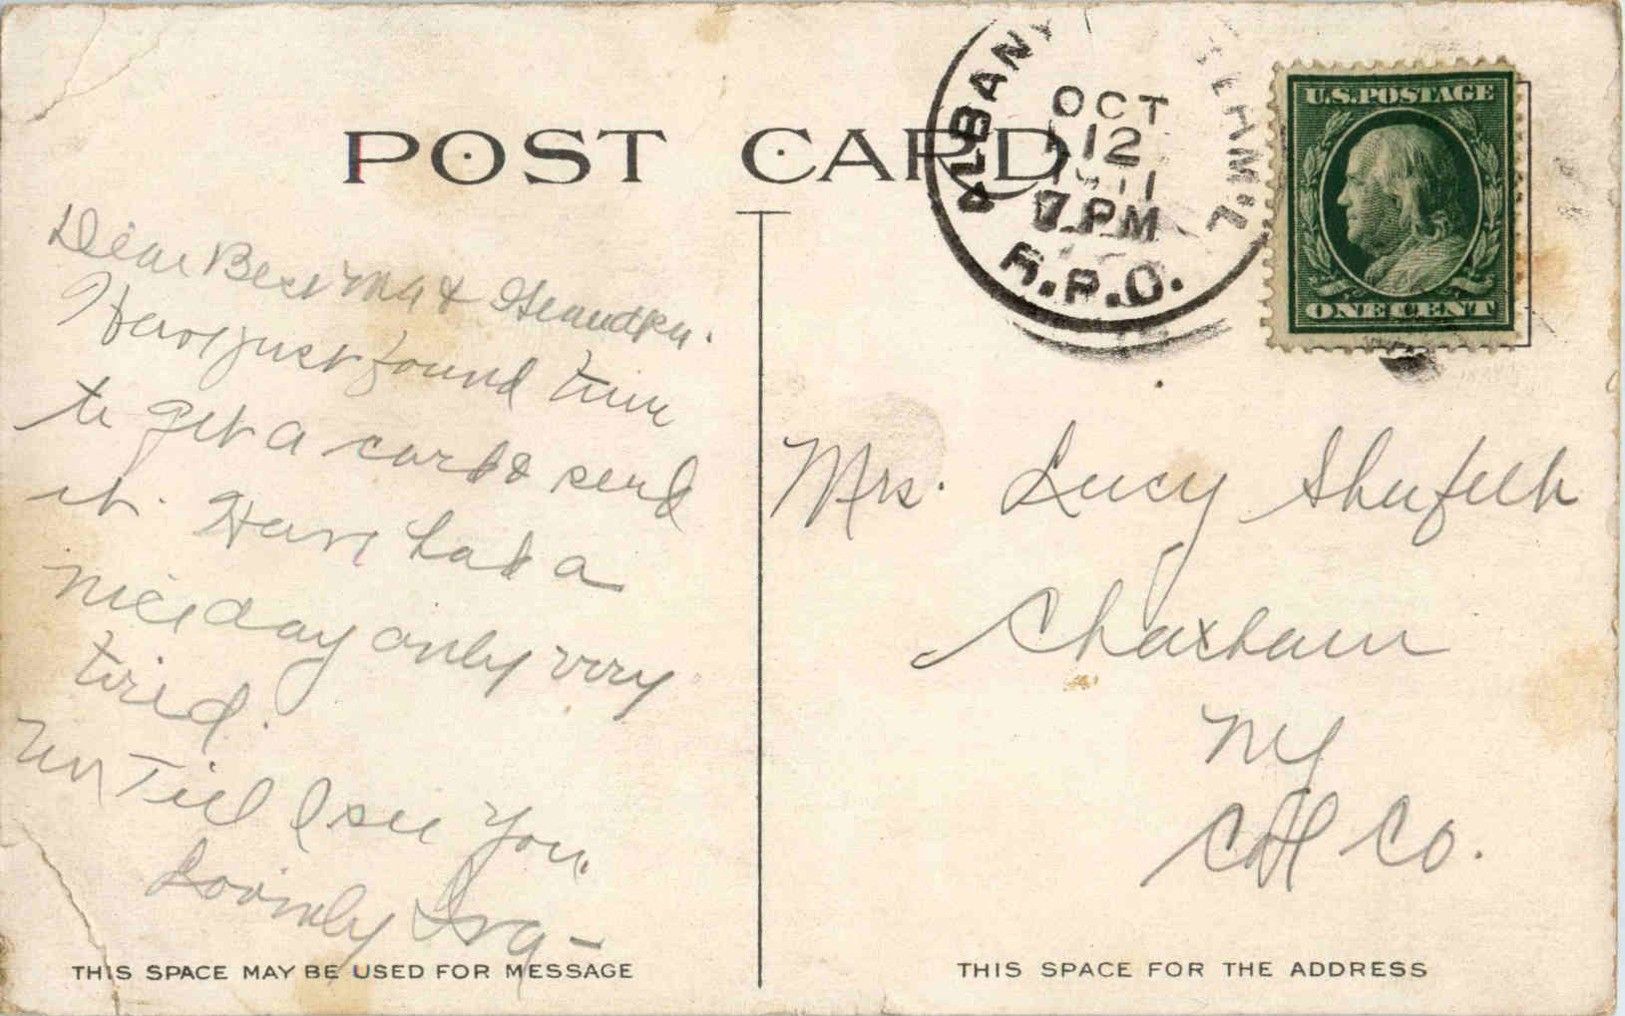 POST CARD
ALBANY
OCT
12
7 PM
R.P.O.
U.S. POSTAGE
ONE CENT
Dear Bess Ma & Grandpa.
Have just found time
to get a card & send
it. Have had a
nice day only very
tired.
Till I see you.
Lovingly Iva -
Mrs. Lucy Shufelt
Chatham
NY
Col Co.
THIS SPACE MAY BE USED FOR MESSAGE
THIS SPACE FOR THE ADDRESS